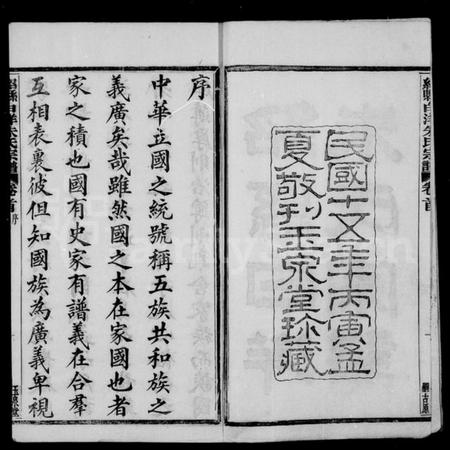 民國十五年丙寅孟
夏敬刊玉泉堂珍藏
序
中華立國之統號稱五族共和族之
義廣矣哉雖然國之本在家國也者
家之積也國有史家有譜義在合羣
互相表裏彼但知國族為廣義卑視
卷首
卷首